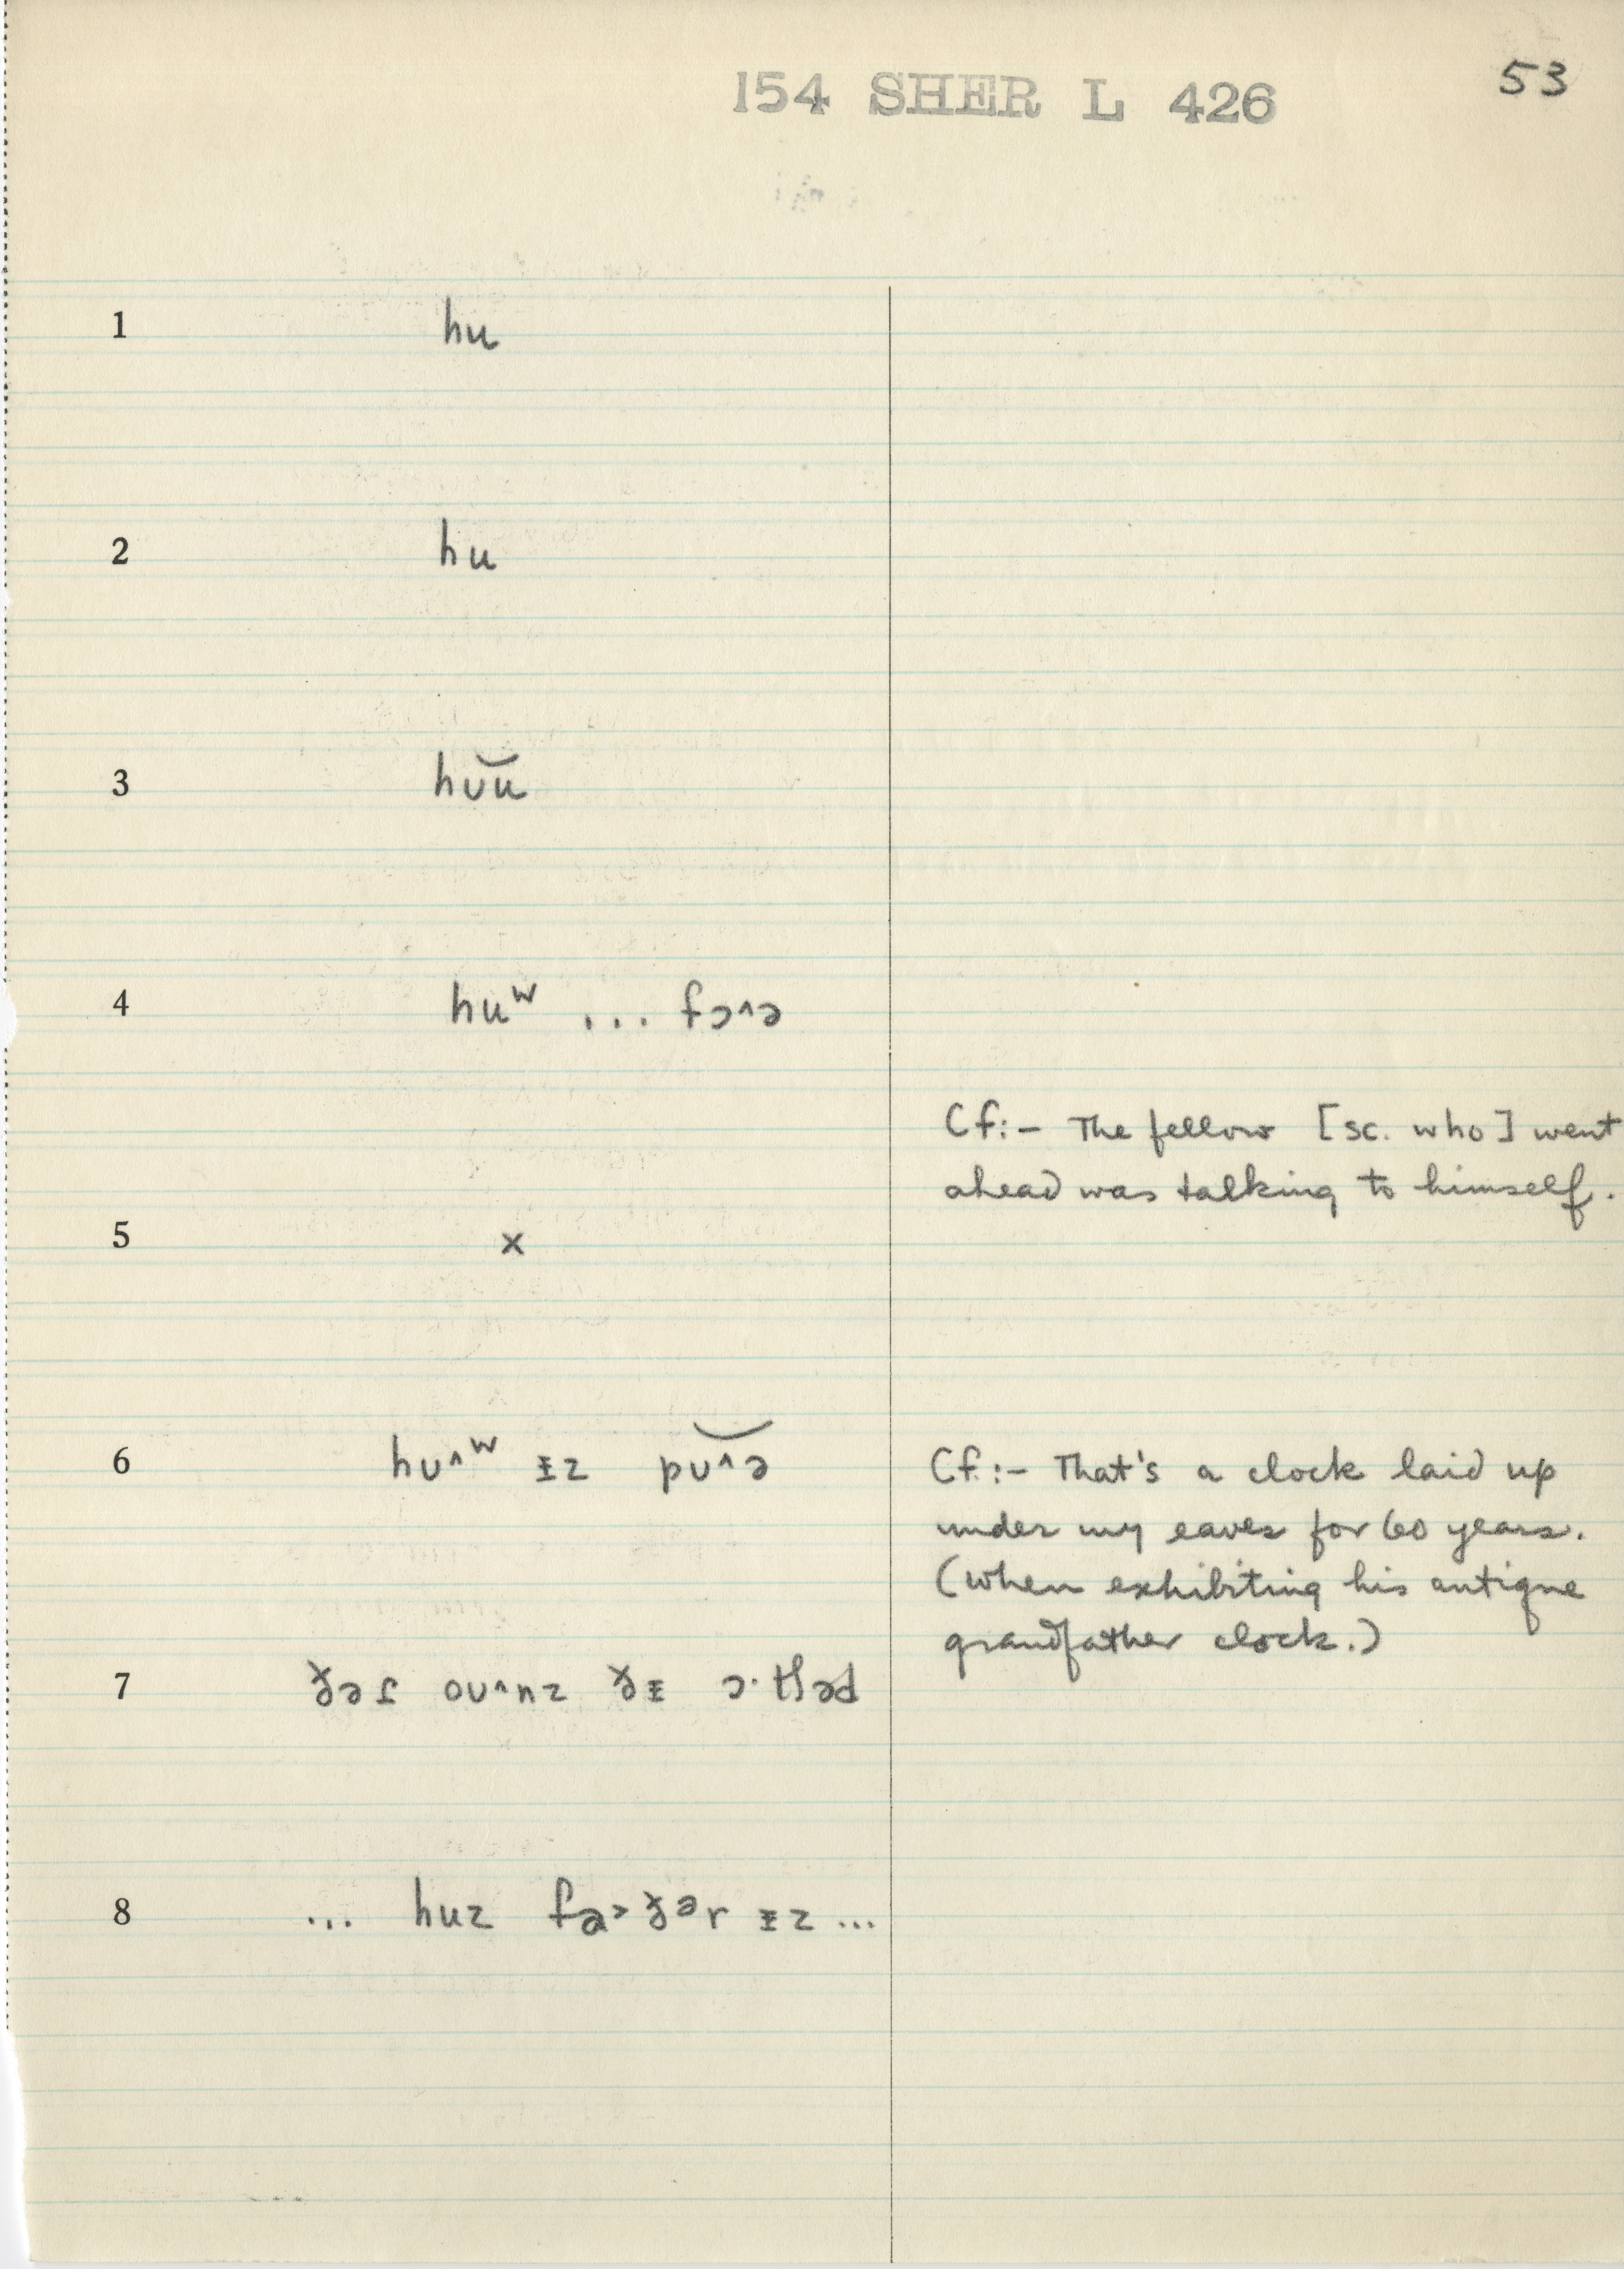 154 SHER L 426
53
1 hu
2 hu
3 hʊ͝u
4 huʷ ... fɔ^ə
Cf:– The fellow [sc. who] went
ahead was talking to himself.
5 x
6 hʊ^ʷ ɪz pʊ͝^ə
Cf.:– That's a clock laid up
under my eaves for 60 years.
(When exhibiting his antique
grandfather clock.)
7 oʊ^nz
8 ... huz ɪz ...